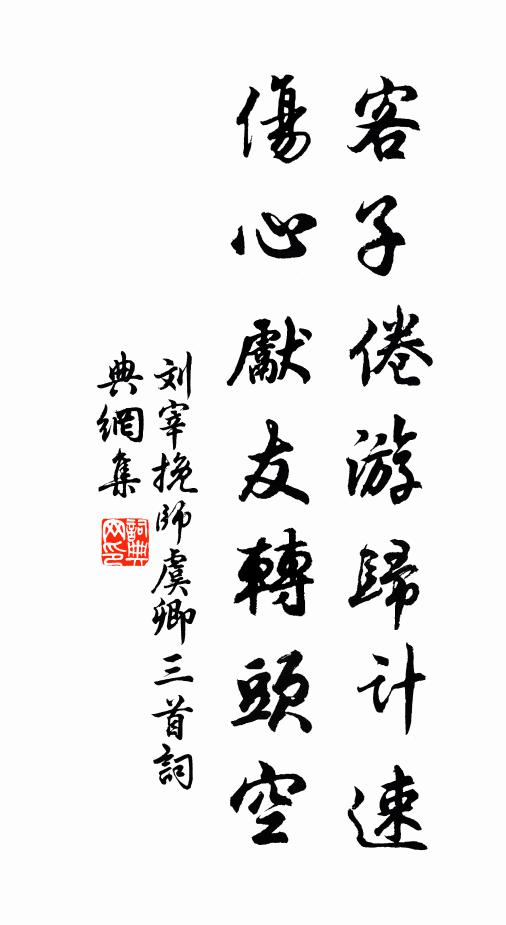 客子倦游歸計速
傷心獻友轉頭空
刘宰挽師虞卿三首詞
典網集
詞典
网印